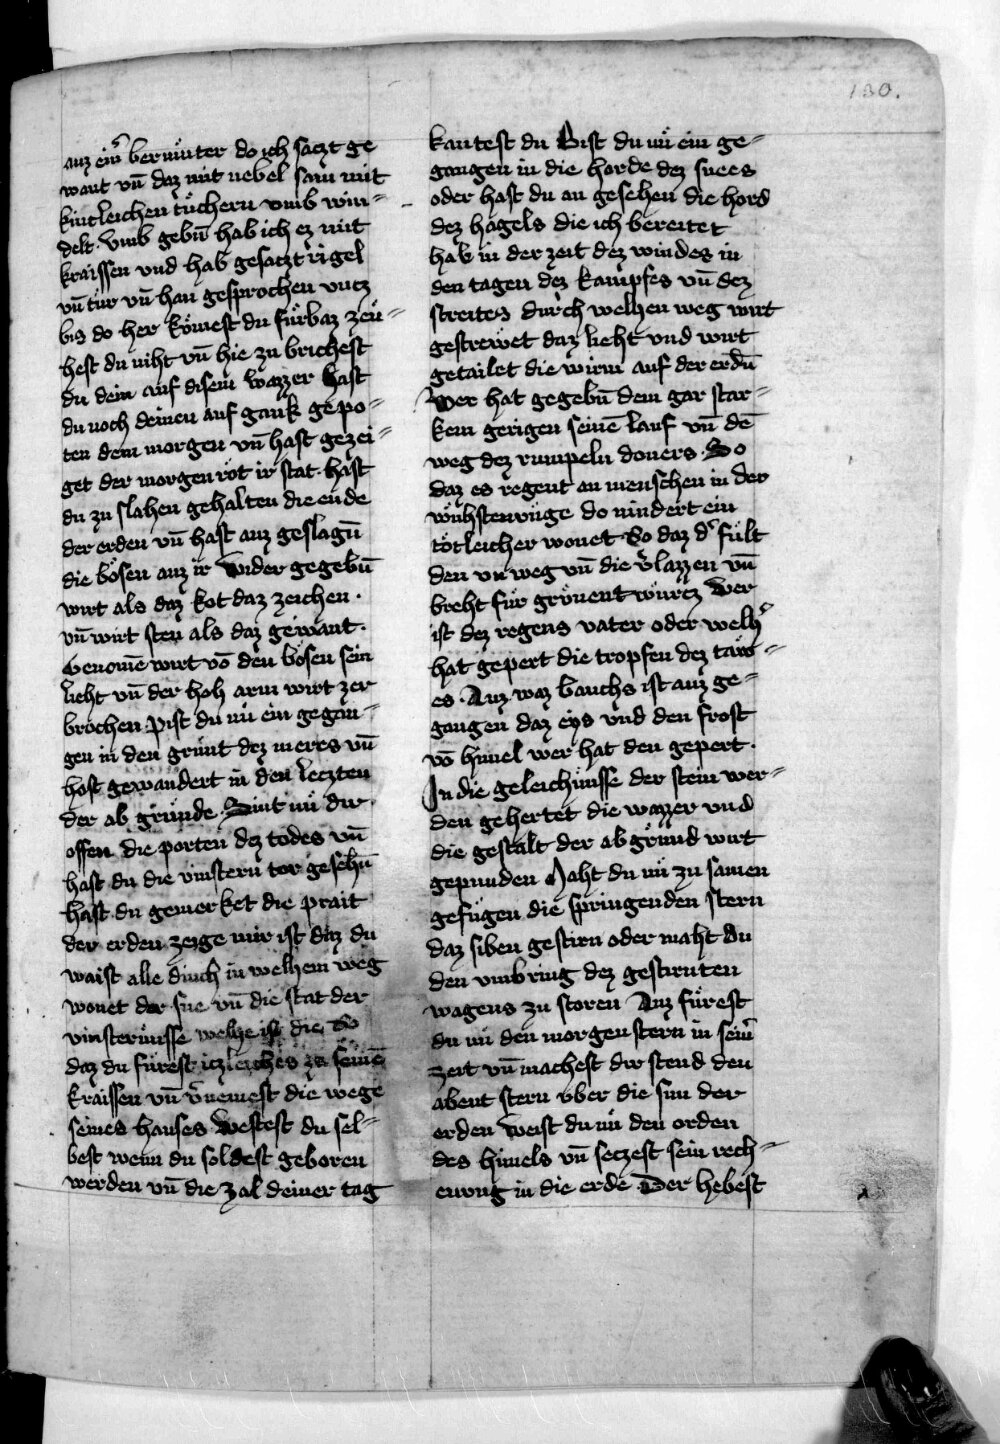 130.
auz einͬ bermuͤter do ich saczt ge
want vn̄ daz mit nebel sam mit
kintleichen tuͤchern vmb win=
delt. Vmb gebuͤr hab ich ez mit
kraissen vnd hab gesaczt rigel
vn̄ tuͤr vn̄ han gesprochen vncz
bis do her koͤmest du fuͤrbaz zeuͤ=
hest du niht vn̄ hie zu brichest
du dein auf disem wazzer Hast
du noch deinen auf gank gepo=
ten dem morgen vn̄ hast gezei=
get der morgen roͤt ir stat. hast
du zu slahen gehalten die ende
der erden vn̄ hast auz geslagn̄
die boͤsen auz ir Wider gegebn̄
wirt als daz kot daz zeichen.
vn̄ wirt sten als daz gewant.
Genom̄e wirt vō den boͤsen sein
lieht vn̄ der hoh arm wirt zer
brochen. Pist du nuͤ ein gegan=
gen in den grunt dez meres vn̄
host gewandert in den leczten
der ab gruͤnde. Sint nuͤ dir
offen die porten dez todes vn̄
hast du die vinstern tor gesehn̄
hast du gemerket die prait
der erden zeige mir ist daz du
waist alle dinch in welhem weg
wonet der sne vn̄ die stat der
vinsternuͤsse welhe ist die So
daz du fuͤrest iczleiches zu seinē
kraissen vn̄ vͤnemest die wege
seines hauses Westest du sel=
best wenn du soldest geboren
werden vn̄ die zal deiner tag
kantest du Bist du nuͤ ein ge=
gangen in die horde dez snees
oder hast du an gesehen die hord
dez hagels die ich bereitet
hab in der zeit dez windes in
den tagen dez kampfes vn̄ dez
streites durch welhen weg wirt
gestrewet daz lieht vnd wirt
getailet die wirm auf der erdn̄
Wer hat gegebn̄ dem gar star=
kem gerigen seinē lauf vn̄ dē
weg dez rumpeln doners. So
daz es regent an menschen in der
wuͤhstenuͤge do nindert ein
toͤtleicher wonet So daz dͬ fuͤlt
den vn weg vn̄ die vͤlazzen vn̄
breht fuͤr gruͤnent wuͤrcz Wer
ist dez regens vater oder welhͬ
hat gepert die tropfen dez taw=
es. Auz waz bauchs ist auz ge=
gangen daz eys vnd den frost
vō himel wer hat den gepert.
In die geleichnuͤsse der stein wer=
den gehertet die wazzer vnd
die gestalt der abgruͤnd wirt
gepunden Maht du nuͤ zu samen
gefuͤgen die springenden stern
daz siben gestirn oder maht du
den vmbring dez gestirnten
wagens zu storen Auz fuͤrest
du nuͤ den morgen stern in seinͬ
zeit vn̄ machest dir stend den
abent stern vber die sun der
erden Weist du nuͤ den orden
des himels vn̄ seczest sein rech=
enung in die erde Der hebest